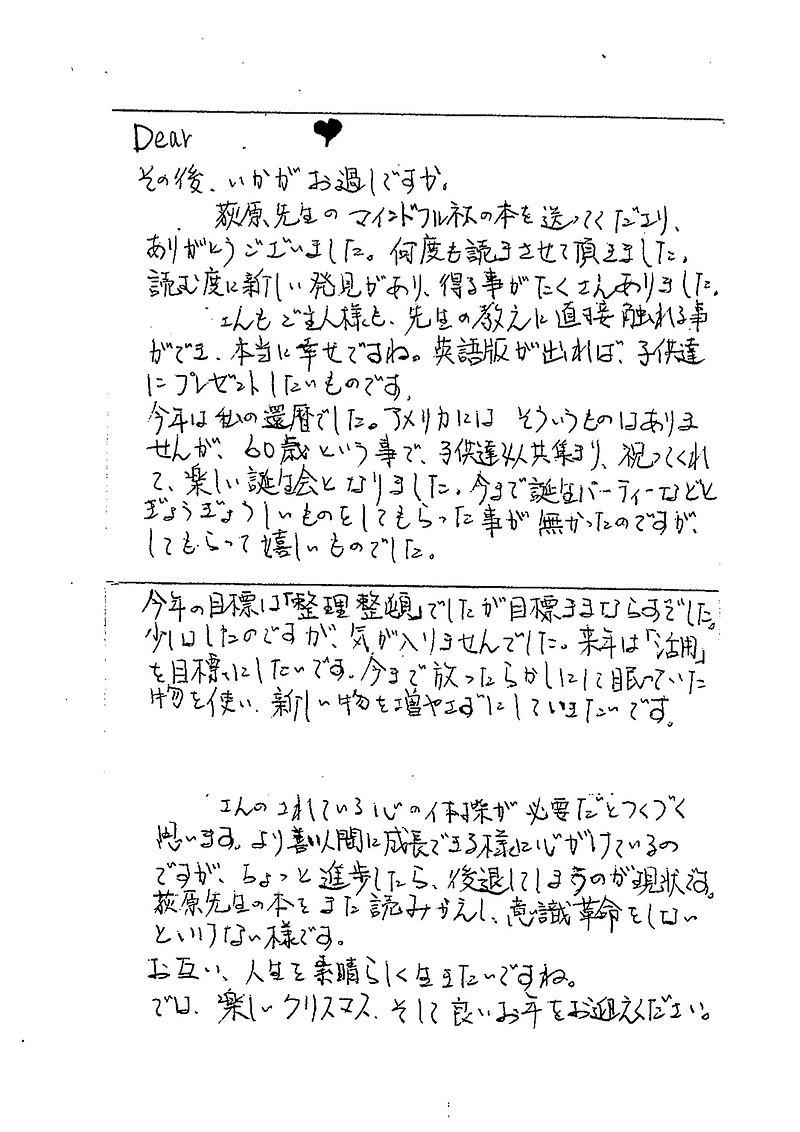 Dear ♥
その後、いかがお過しですか。
荻原先生のマインドフル の本を送ってくださり、
ありがとうございました。何度も読まさせて頂きました。
読む度に新しい発見があり、得る事がたくさんありました。
さんもご主人様も、先生の教えに直接触れる事
ができ、本当に幸せですね。英語版が出れば、子供達
にプレゼントしたいものです。
今年は私の還暦でした。アメリカには そういうものはありま
せんが、60歳という事で、子供達 共集まり、祝ってくれ
て、楽しい誕生会となりました。今まで誕生パーティーなどと
ぎょうぎょうしいものをしてもらった事が無かったのですが、
してもらって嬉しいものでした。
今年の目標は「整理整頓」でしたが目標ままならずでした。
少しはしたのですが、気が入りませんでした。来年は「活用」
を目標にしたいです。今まで放ったらかしにして眠っていた
物を使い、新しい物を増やさずにしていきたいです。
さんのされている心の体操が必要だとつくづく
思います。より善い人間に成長できる様に心がけているの
ですが、ちょっと進歩したら、後退してしまうのが現状です。
荻原先生の本をまた読みかえし、意識革命をしない
といけない様です。
お互い、人生を素晴らしく生きたいですね。
では、楽しいクリスマス、そして良いお年をお迎えください。